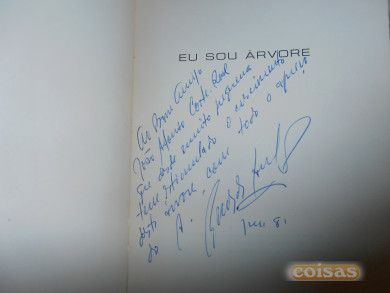 EU SOU ÁRVORE
Ao Bom Amigo
João Afonso Corte-Real
que desde muito pequena
tem estimulado o crescimento
desta árvore, com todo o apreço
do A.
Jun 81
coisas